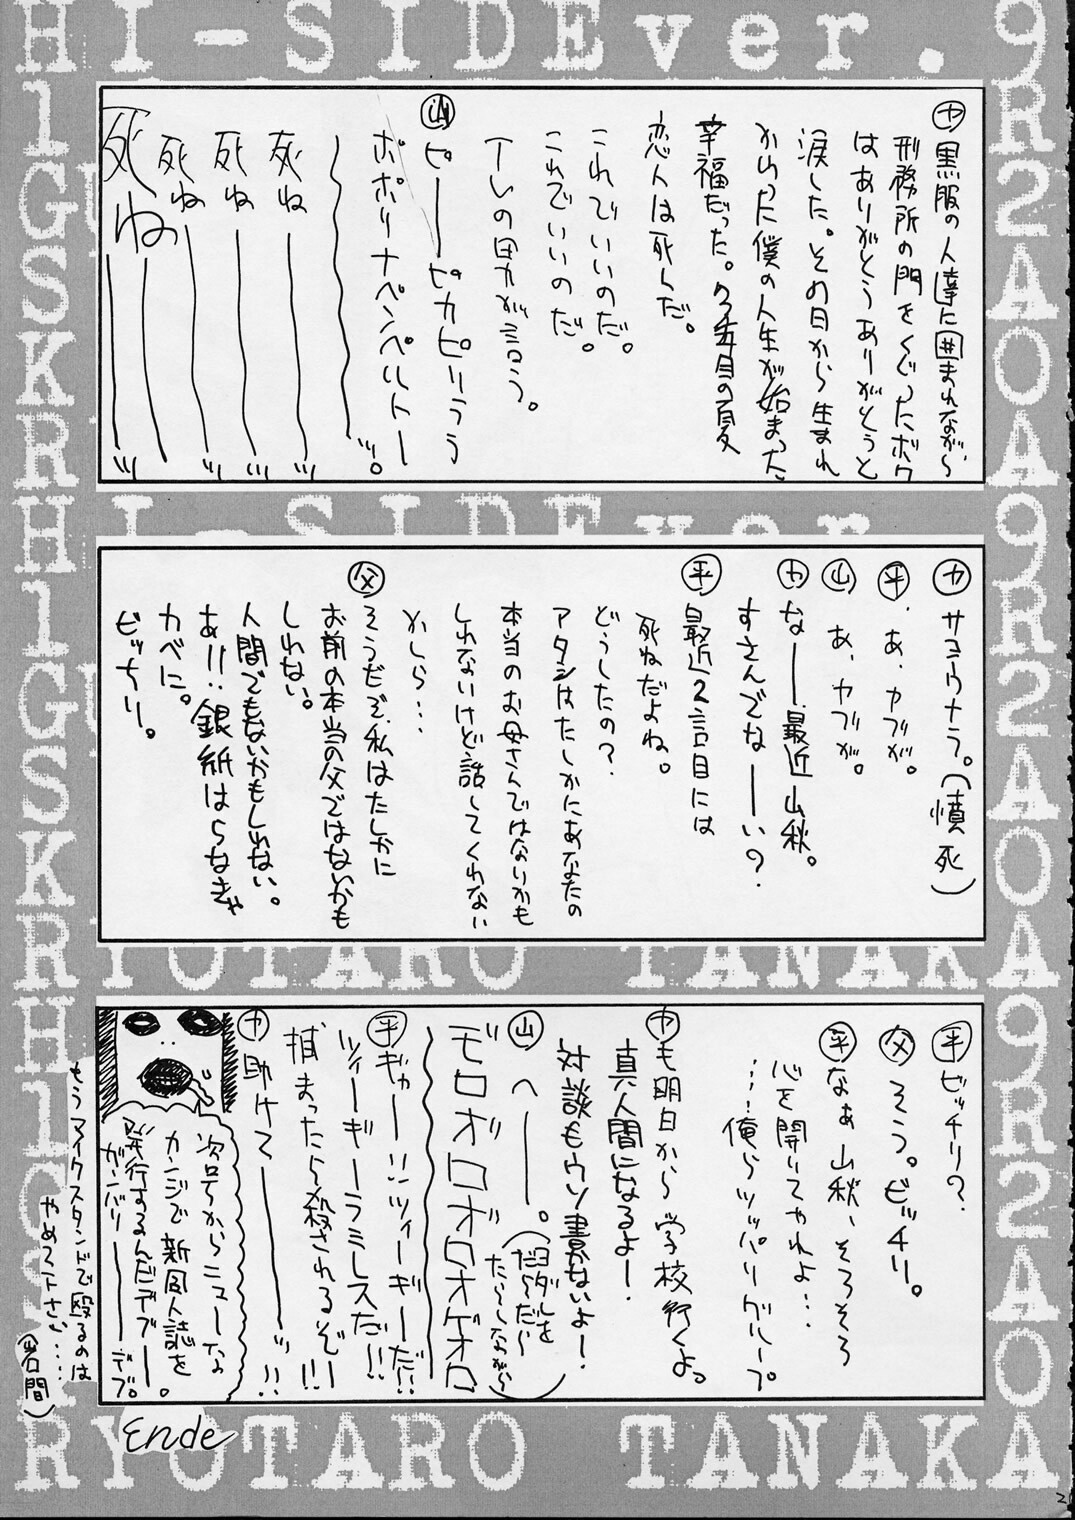 HI-SIDEver.
㋳黒服の人達に囲まれながら、
刑務所の門をくぐったボク
はありがとうありがとうと
涙した。その日から生まれ
かわった僕の人生が始まった
幸福だった。7年目の夏
恋人は死んだ。
これでいいのだ。
これでいいのだ。
ってTシャツの男が言う。
㊤ピーーーピカピリうう
ポポリナペンペルトー
〜〜〜ッ。
死ねーーーッ
死ねーーーッ
死ねーーーッ
死ねーーーッ
HI-SIDEver.
㋳サヨウナラ。(憤死)
㊥あ、ヤブが。
㊤あ、ヤブが。
㋳なー最近山秋。
すさんでなーい?
㊥最近2言目には
死ねだよね。
どうしたの?
アタシはたしかにあなたの
本当のお母さんではないかも
しれないけど、話してくれない
かしら…
㊛そうだぞ、私はたしかに
お前の本当の父ではないかも
しれない。
人間でもないかもしれない。
あ!!銀紙はらなきゃ
カベに。
ビッチリ。
RYOTARO TANAKA
ビッチリ?
そう。ビッチリ。
なぁ山秋、そろそろ
心を開いてやれよ…
……俺らツッパリグループ。
も明日から学校行くよっ
真人間になるよー!
対談もウソ書かないよー!
山 へーーー。(ヨダレを
だらだら
たらしながら)
ボロオロオロオロオゲオロ
ギャー!!ツィーギーだ!!
ツィーギーラミレスだ!!
捕まったら殺されるぞー!!!
助けてーーーーッ!!
次号からニューな
カンジで新同人誌を
発行するんだデブー。
ガンバリーーーデブ。
もうマイクスタンドで殴るのは
やめて下さい…。
(岩間)
Ende
RYOTARO TANAKA
2